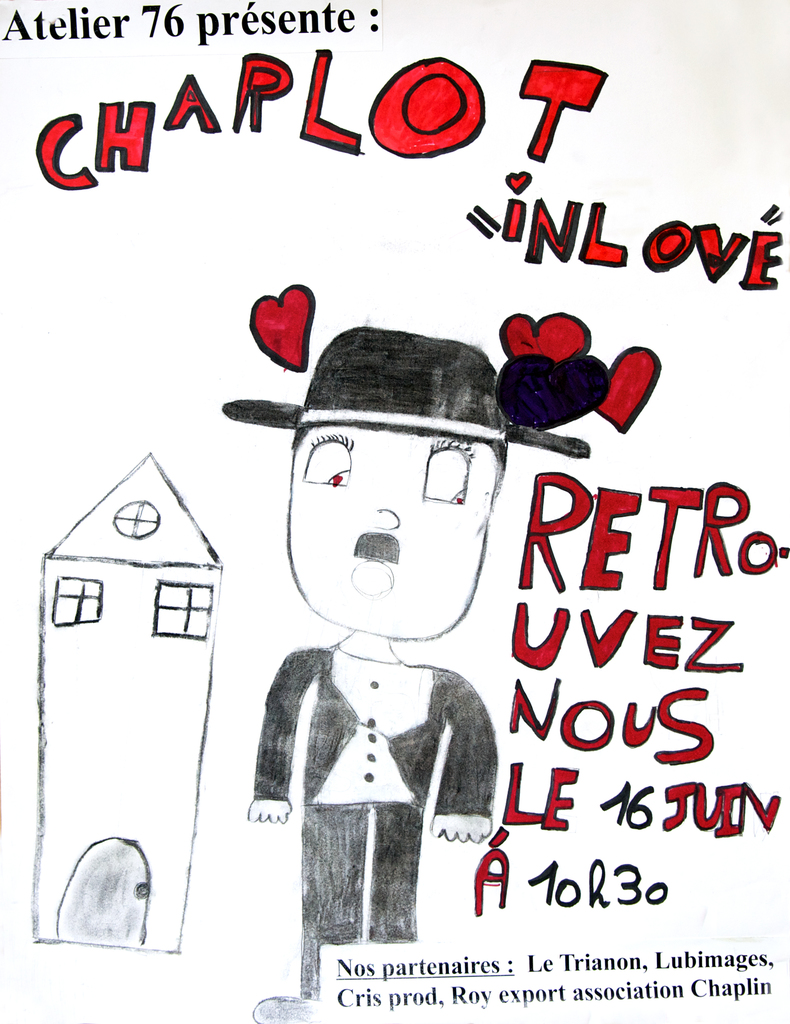 Atelier 76 présente :
CHARLOT
"iNLOVÉ"
RETRO-
UVEZ
NOUS
LE 16 JUIN
Á 10h30
Nos partenaires : Le Trianon, Lubimages,
Cris prod, Roy export association Chaplin